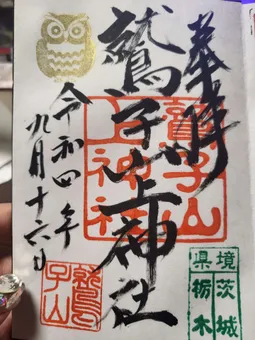 奉拝
鷲子山上神社
令和四年
九月十六日
鷲子山
上神社
境 茨城
県 栃木
鷲
子山